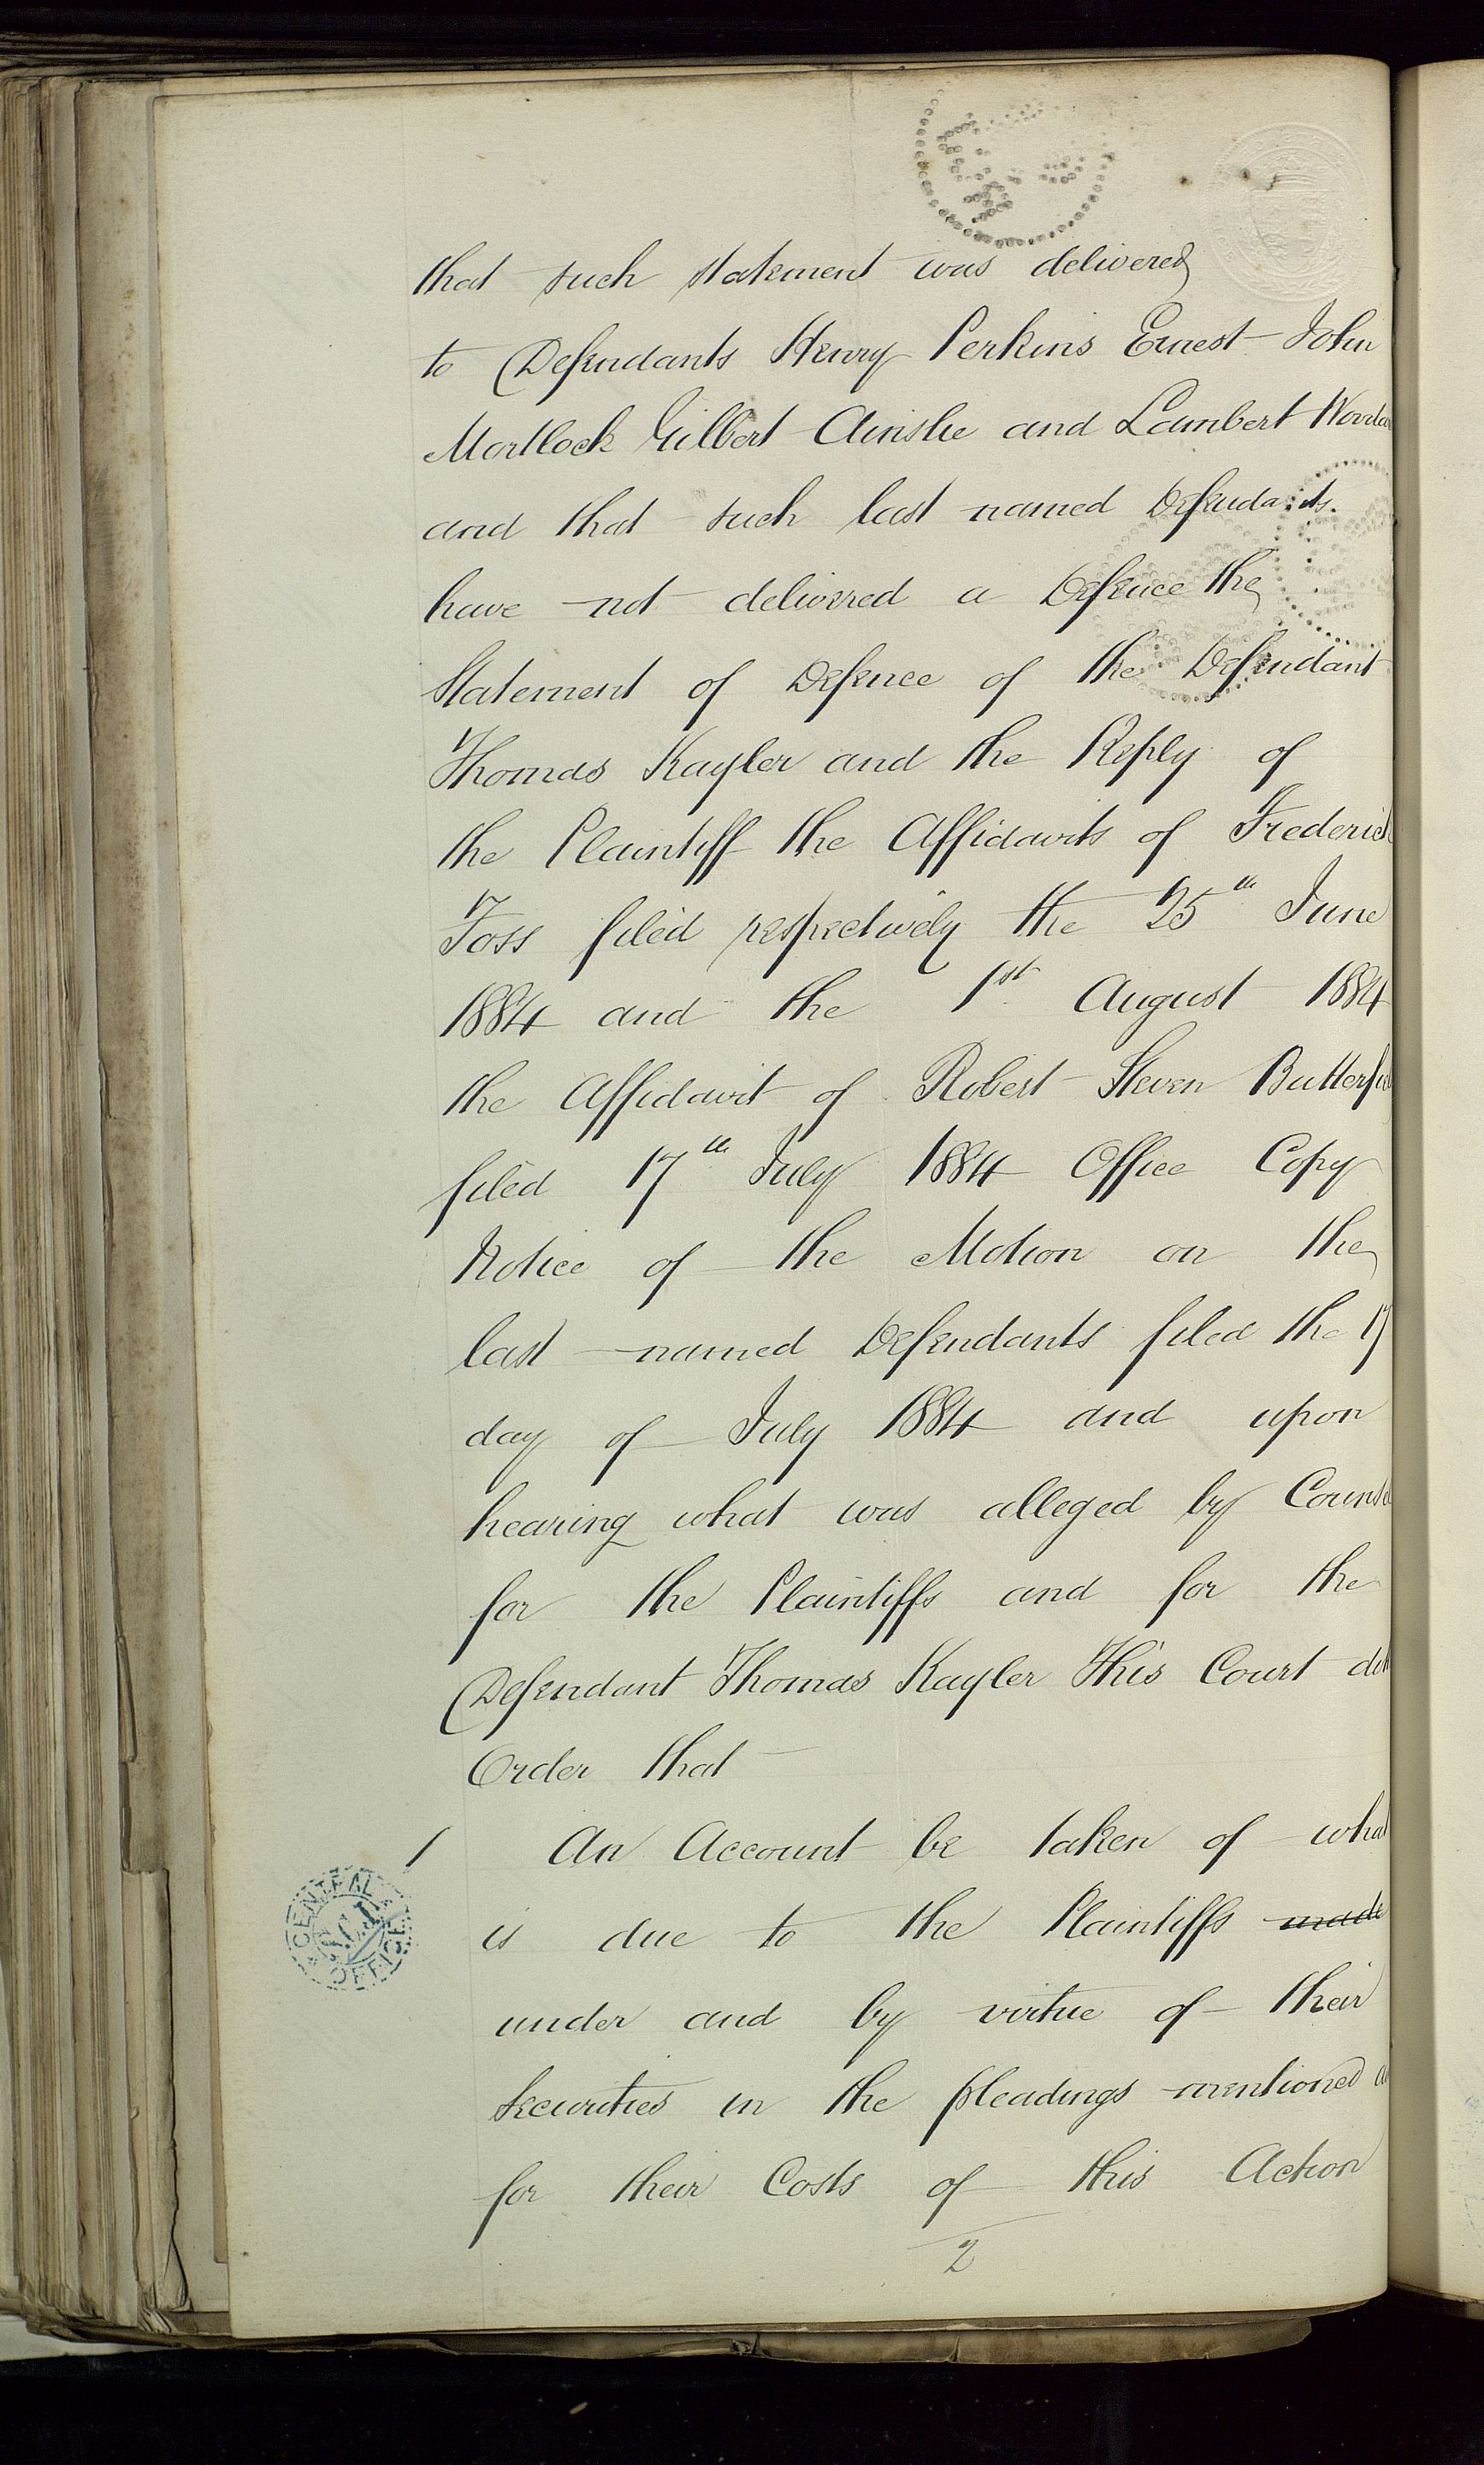 that such statement was delivered
to Defendants Henry Perkins Ernest John
Mortlock Gilbert Ainslie and Lambert
and that such last named Defendants.
have not delivered a Defence the
Statement of Defence of the Defendant
Thomas Kayler and the Reply of
the Plaintiff the Affidavits of Frederick
Foss filed respectively the 25th June
1884 and the 1st August 1884
the Affidavit of Robert Steven Butterfie
filed 17th July 1884 Office Copy
Notice of the Motion on the
last named Defendants filed the 17
day of July 1884 and upon
hearing what was alleged by Counsel
for the Plaintiffs and for the
Defendant Thomas Kayler This Court doth
Order that
1 An Account be taken of what
is due to the Plaintiffs made
under and by virtue of their
Securities in the pleadings mentioned a
for their Costs of this Action
2
CENTRAL OFFICE